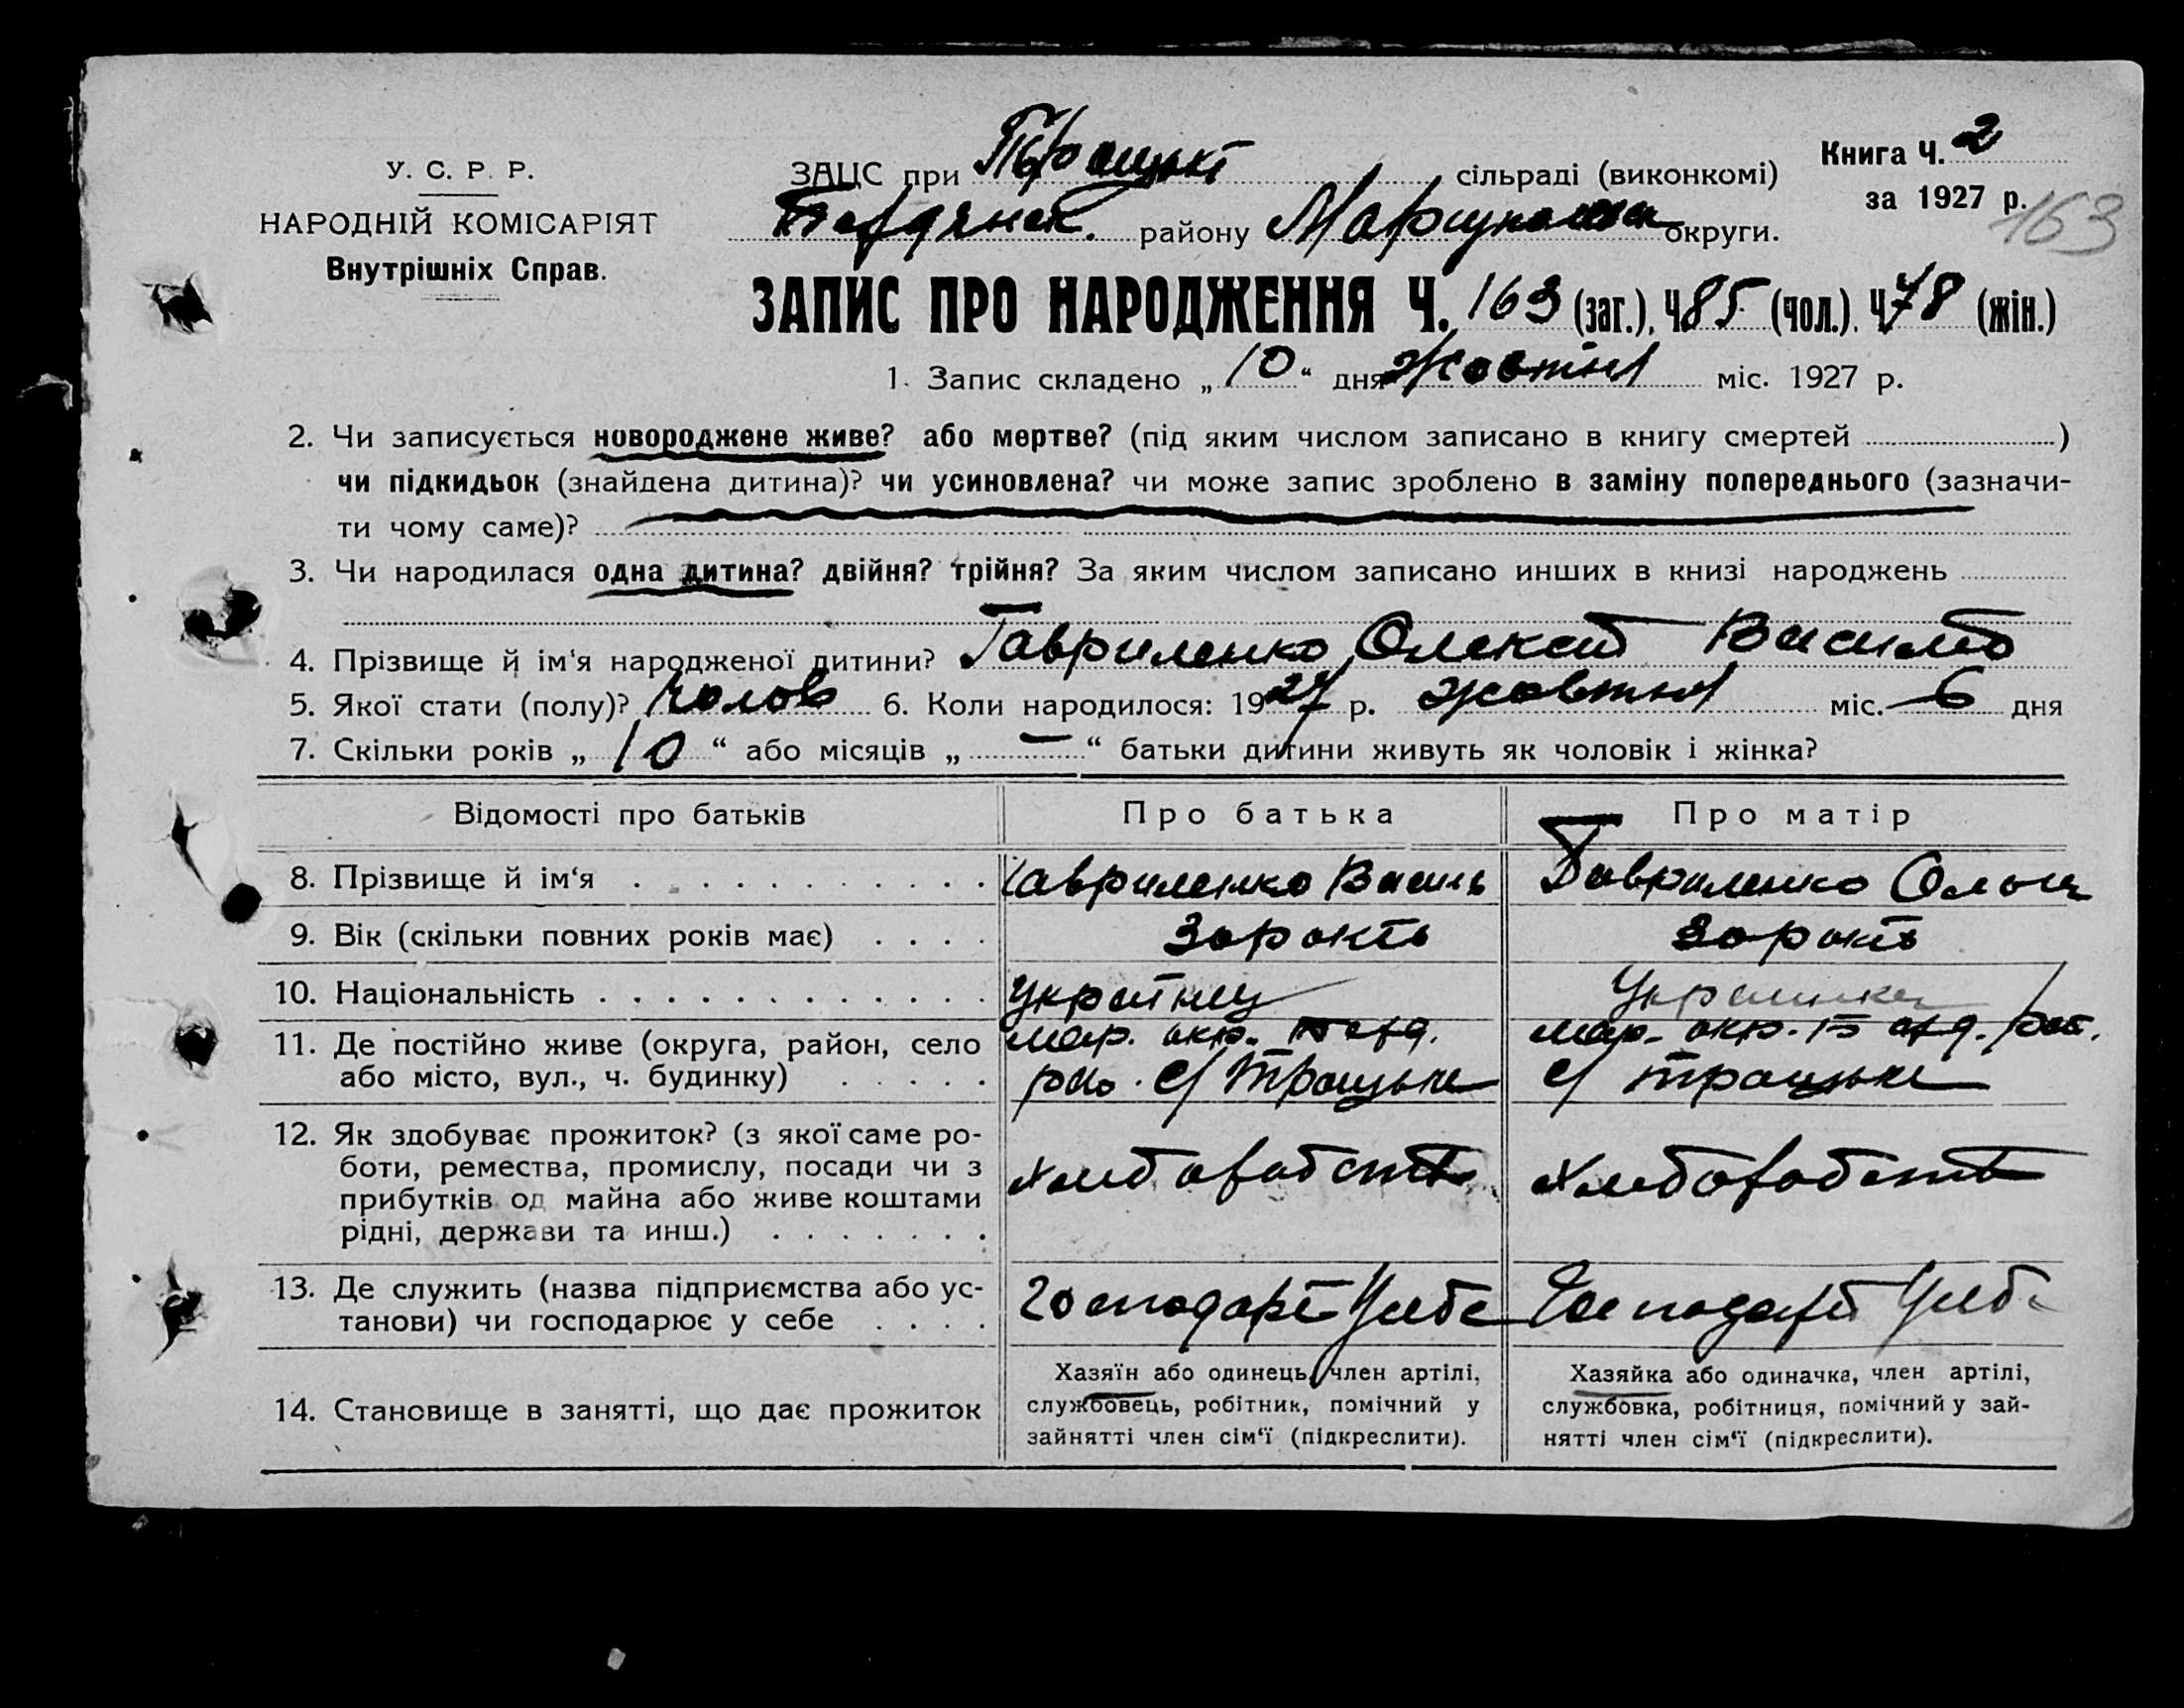 У. С. Р. Р.
НАРОДНІЙ КОМІСАРІЯТ
Внутрішніх Справ.
ЗАЦС при Троцькі сільраді (виконкомі)
Бердянск. району Маріупольск округи.
Книга Ч. 2
за 1927 р.
163
ЗАПИС ПРО НАРОДЖЕННЯ Ч. 163 (заг.), Ч 85 (чол.). Ч 78 (жін.)
1. Запис складено „ 10 “ дня жовтня міс. 1927 р.
2. Чи записується новороджене живе? або мертве? (під яким числом записано в книгу смертей )
чи підкидьок (знайдена дитина)? чи усиновлена? чи може запис зроблено в заміну попереднього (зазначи-
ти чому саме)?
3. Чи народилася одна дитина? двійня? трійня? За яким числом записано инших в книзі народжень
4. Прізвище й ім'я народженої дитини? Гавриленко Олексій
5. Якої стати (полу)? Чолов 6. Коли народилося: 1927 р. жовтня міс. 6 дня
7. Скільки років „ 10 “ або місяців „ — “ батьки дитини живуть як чоловік і жінка?
Відомості про батьків Про батька Про матір
8. Прізвище й ім‘я Гавриленко Василь Гавриленко Ольга
9. Вік (скільки повних років має) 30 років 30 років
10. Національність Українец Українка
11. Де постійно живе (округа, район, село Мар. окр. Берд. Мар. окр. Берд. рай.
або місто, вул., ч. будинку) рай. с/ Троцьке с/ Троцьке
12. Як здобуває прожиток? (з якої саме ро-
боти, ремества, промислу, посади чи з Хліборобств Хліборобств
прибутків од майна або живе коштами
рідні, держави та инш.)
13. Де служить (назва підприємства або ус-
танови) чи господарює у себе Господарє У себе Господарє У себе
14. Становище в занятті, що дає прожиток
Хазяїн або одинець, член артілі,
службовець, робітник, помічний у
зайнятті член сім‘ї (підкреслити).
Хазяйка або одиначка, член артілі,
службовка, робітниця, помічний у зай-
нятті член сім‘ї (підкреслити).